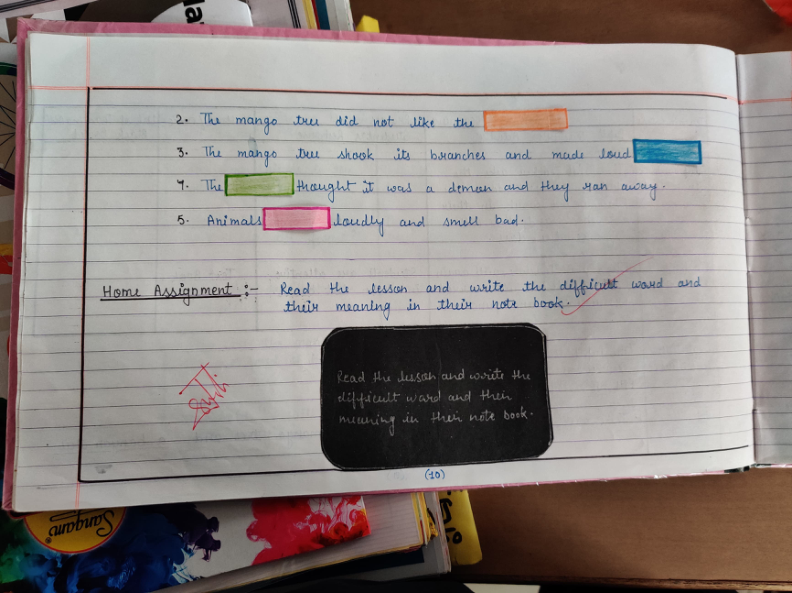 2. The mango tree did not like the
3. The mango tree shook its branches and made loud
4. The thought it was a demon and they ran away.
5. Animals loudly and smell bad.
Home Assignment :- Read the lesson and write the difficult word and
their meaning in their note book.
Read the lesson and write the
difficult word and their
meaning in their note book.
(10)
Sangam